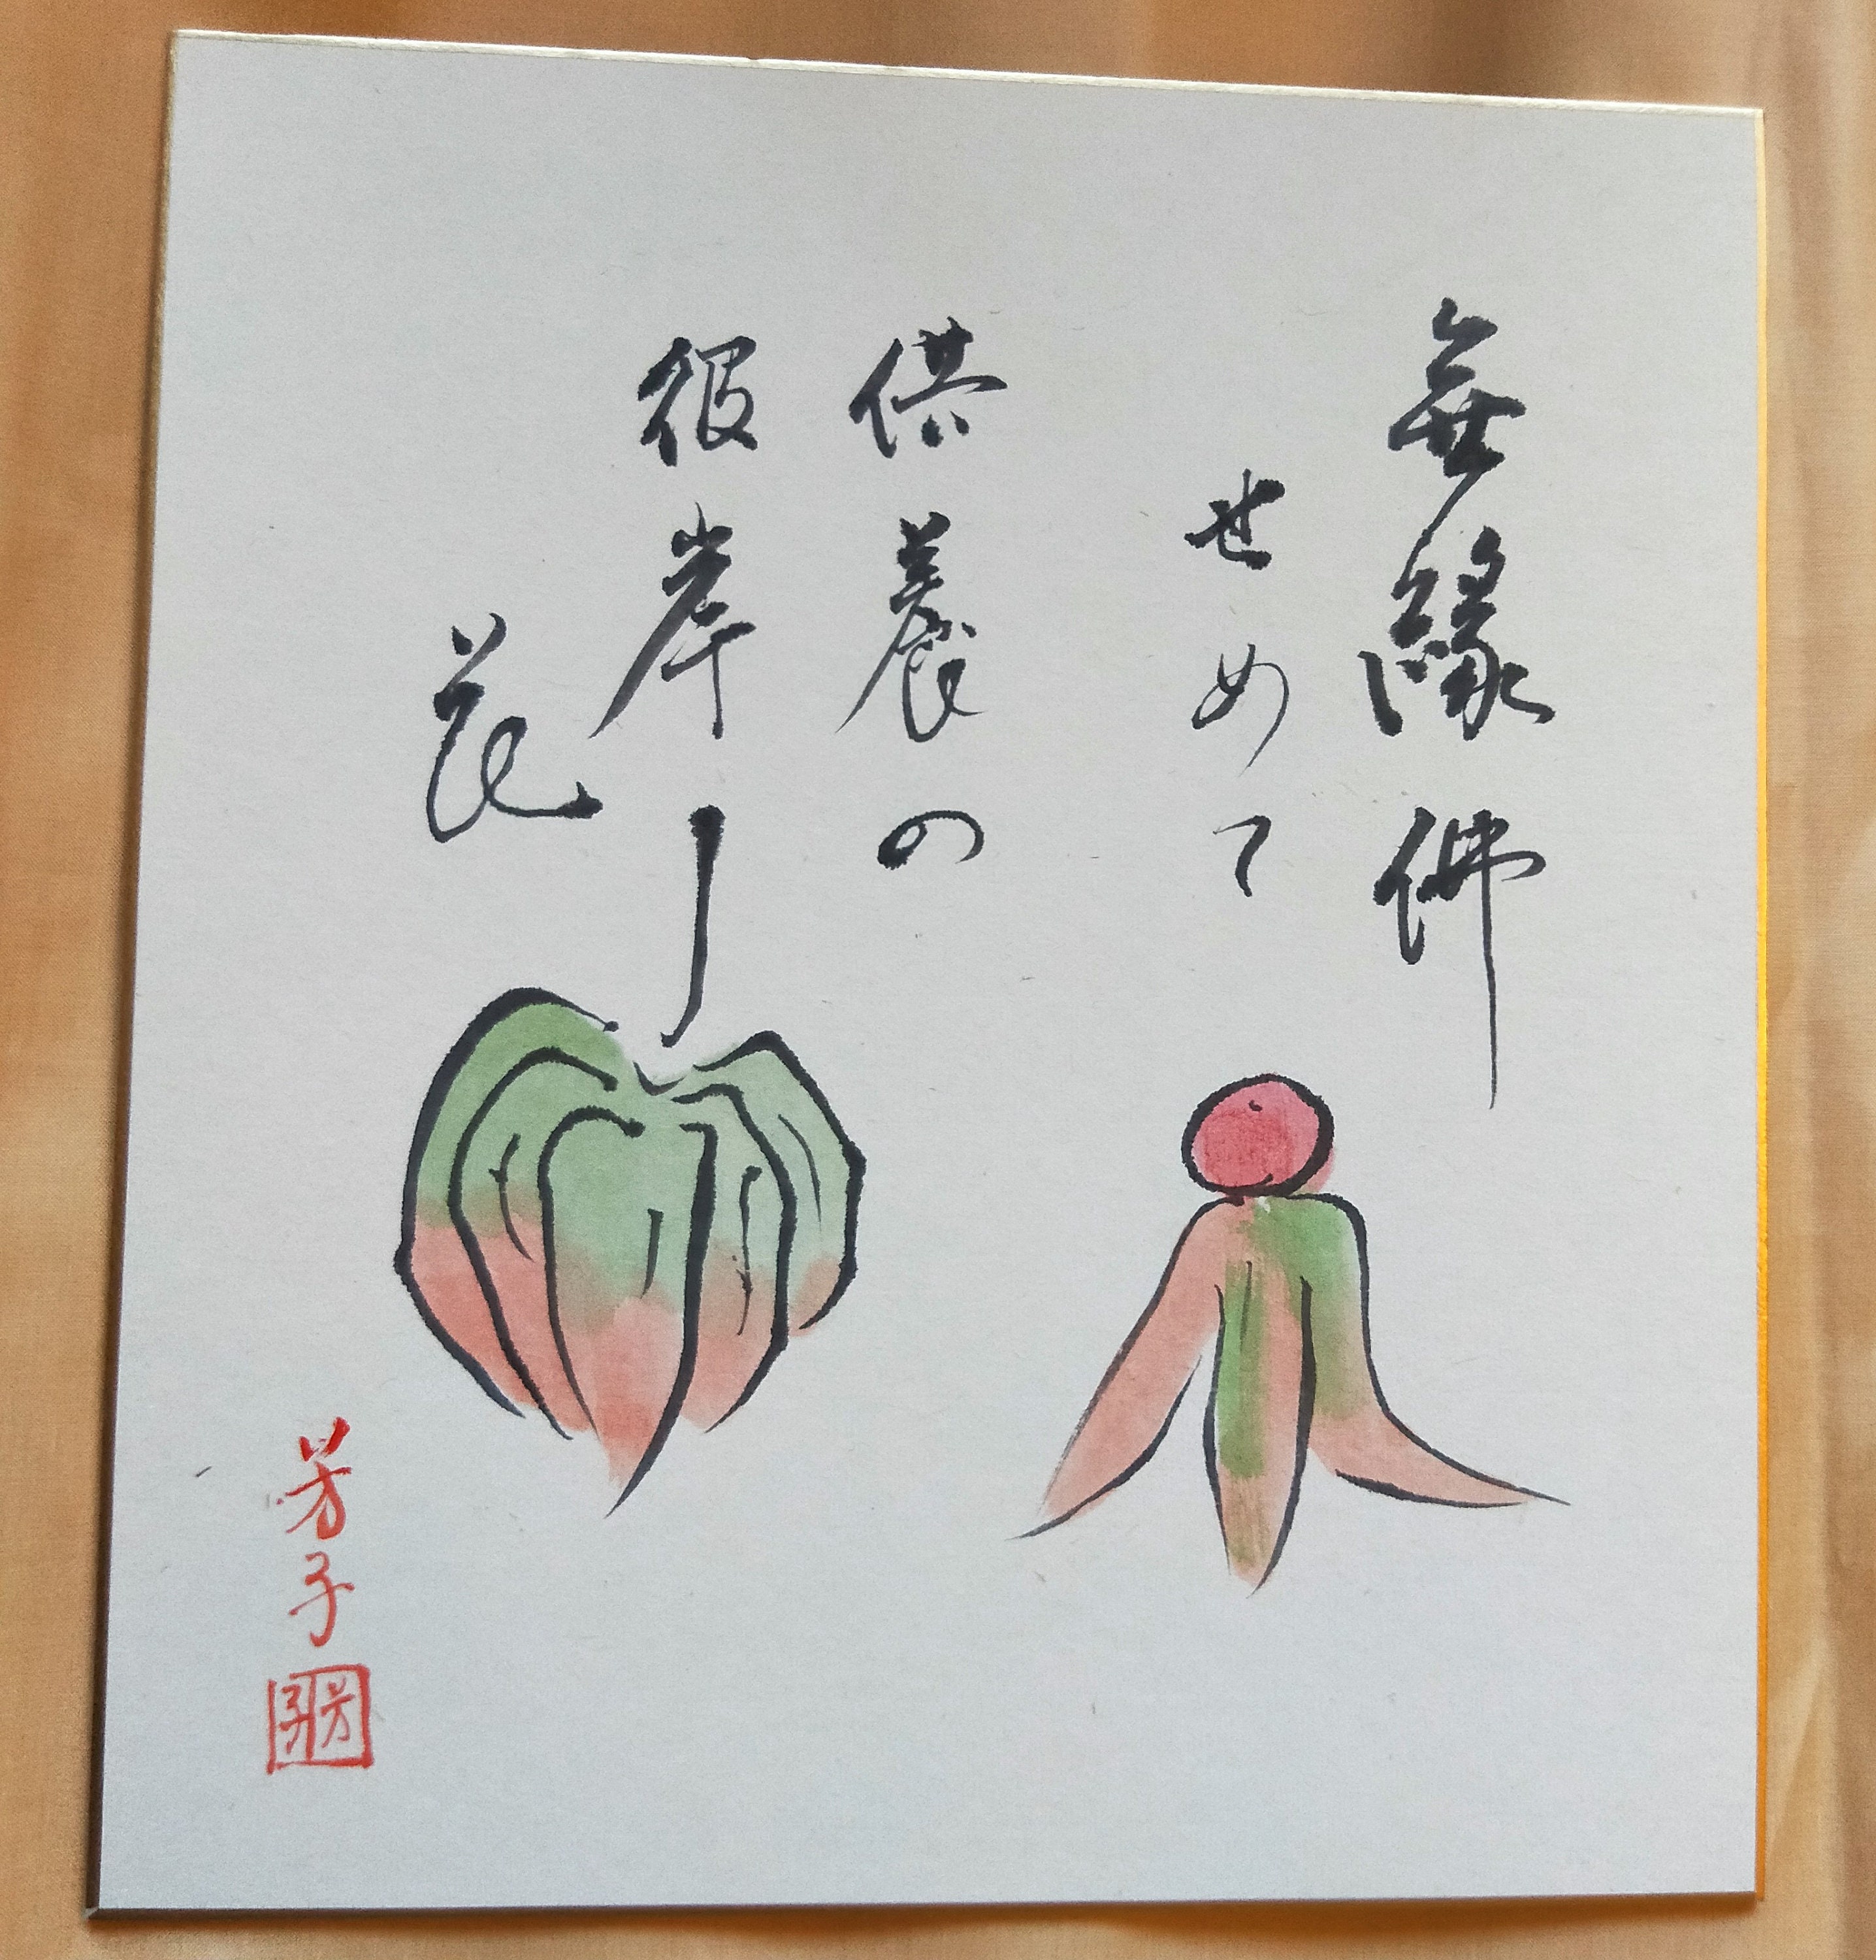 無縁佛
せめて
供養の
彼岸
花
芳子
芳子